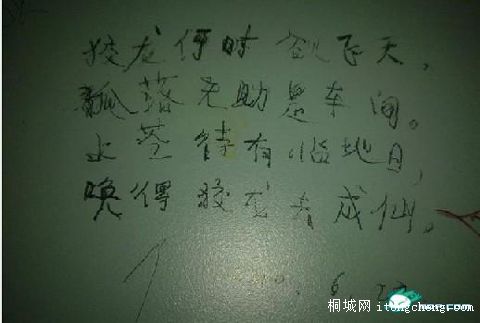 蛟龙何时飞天,
瓢落无助是车间。
上苍待有临地日,
晚得蛟龙去成仙。
6
桐城网 itongcheng.com